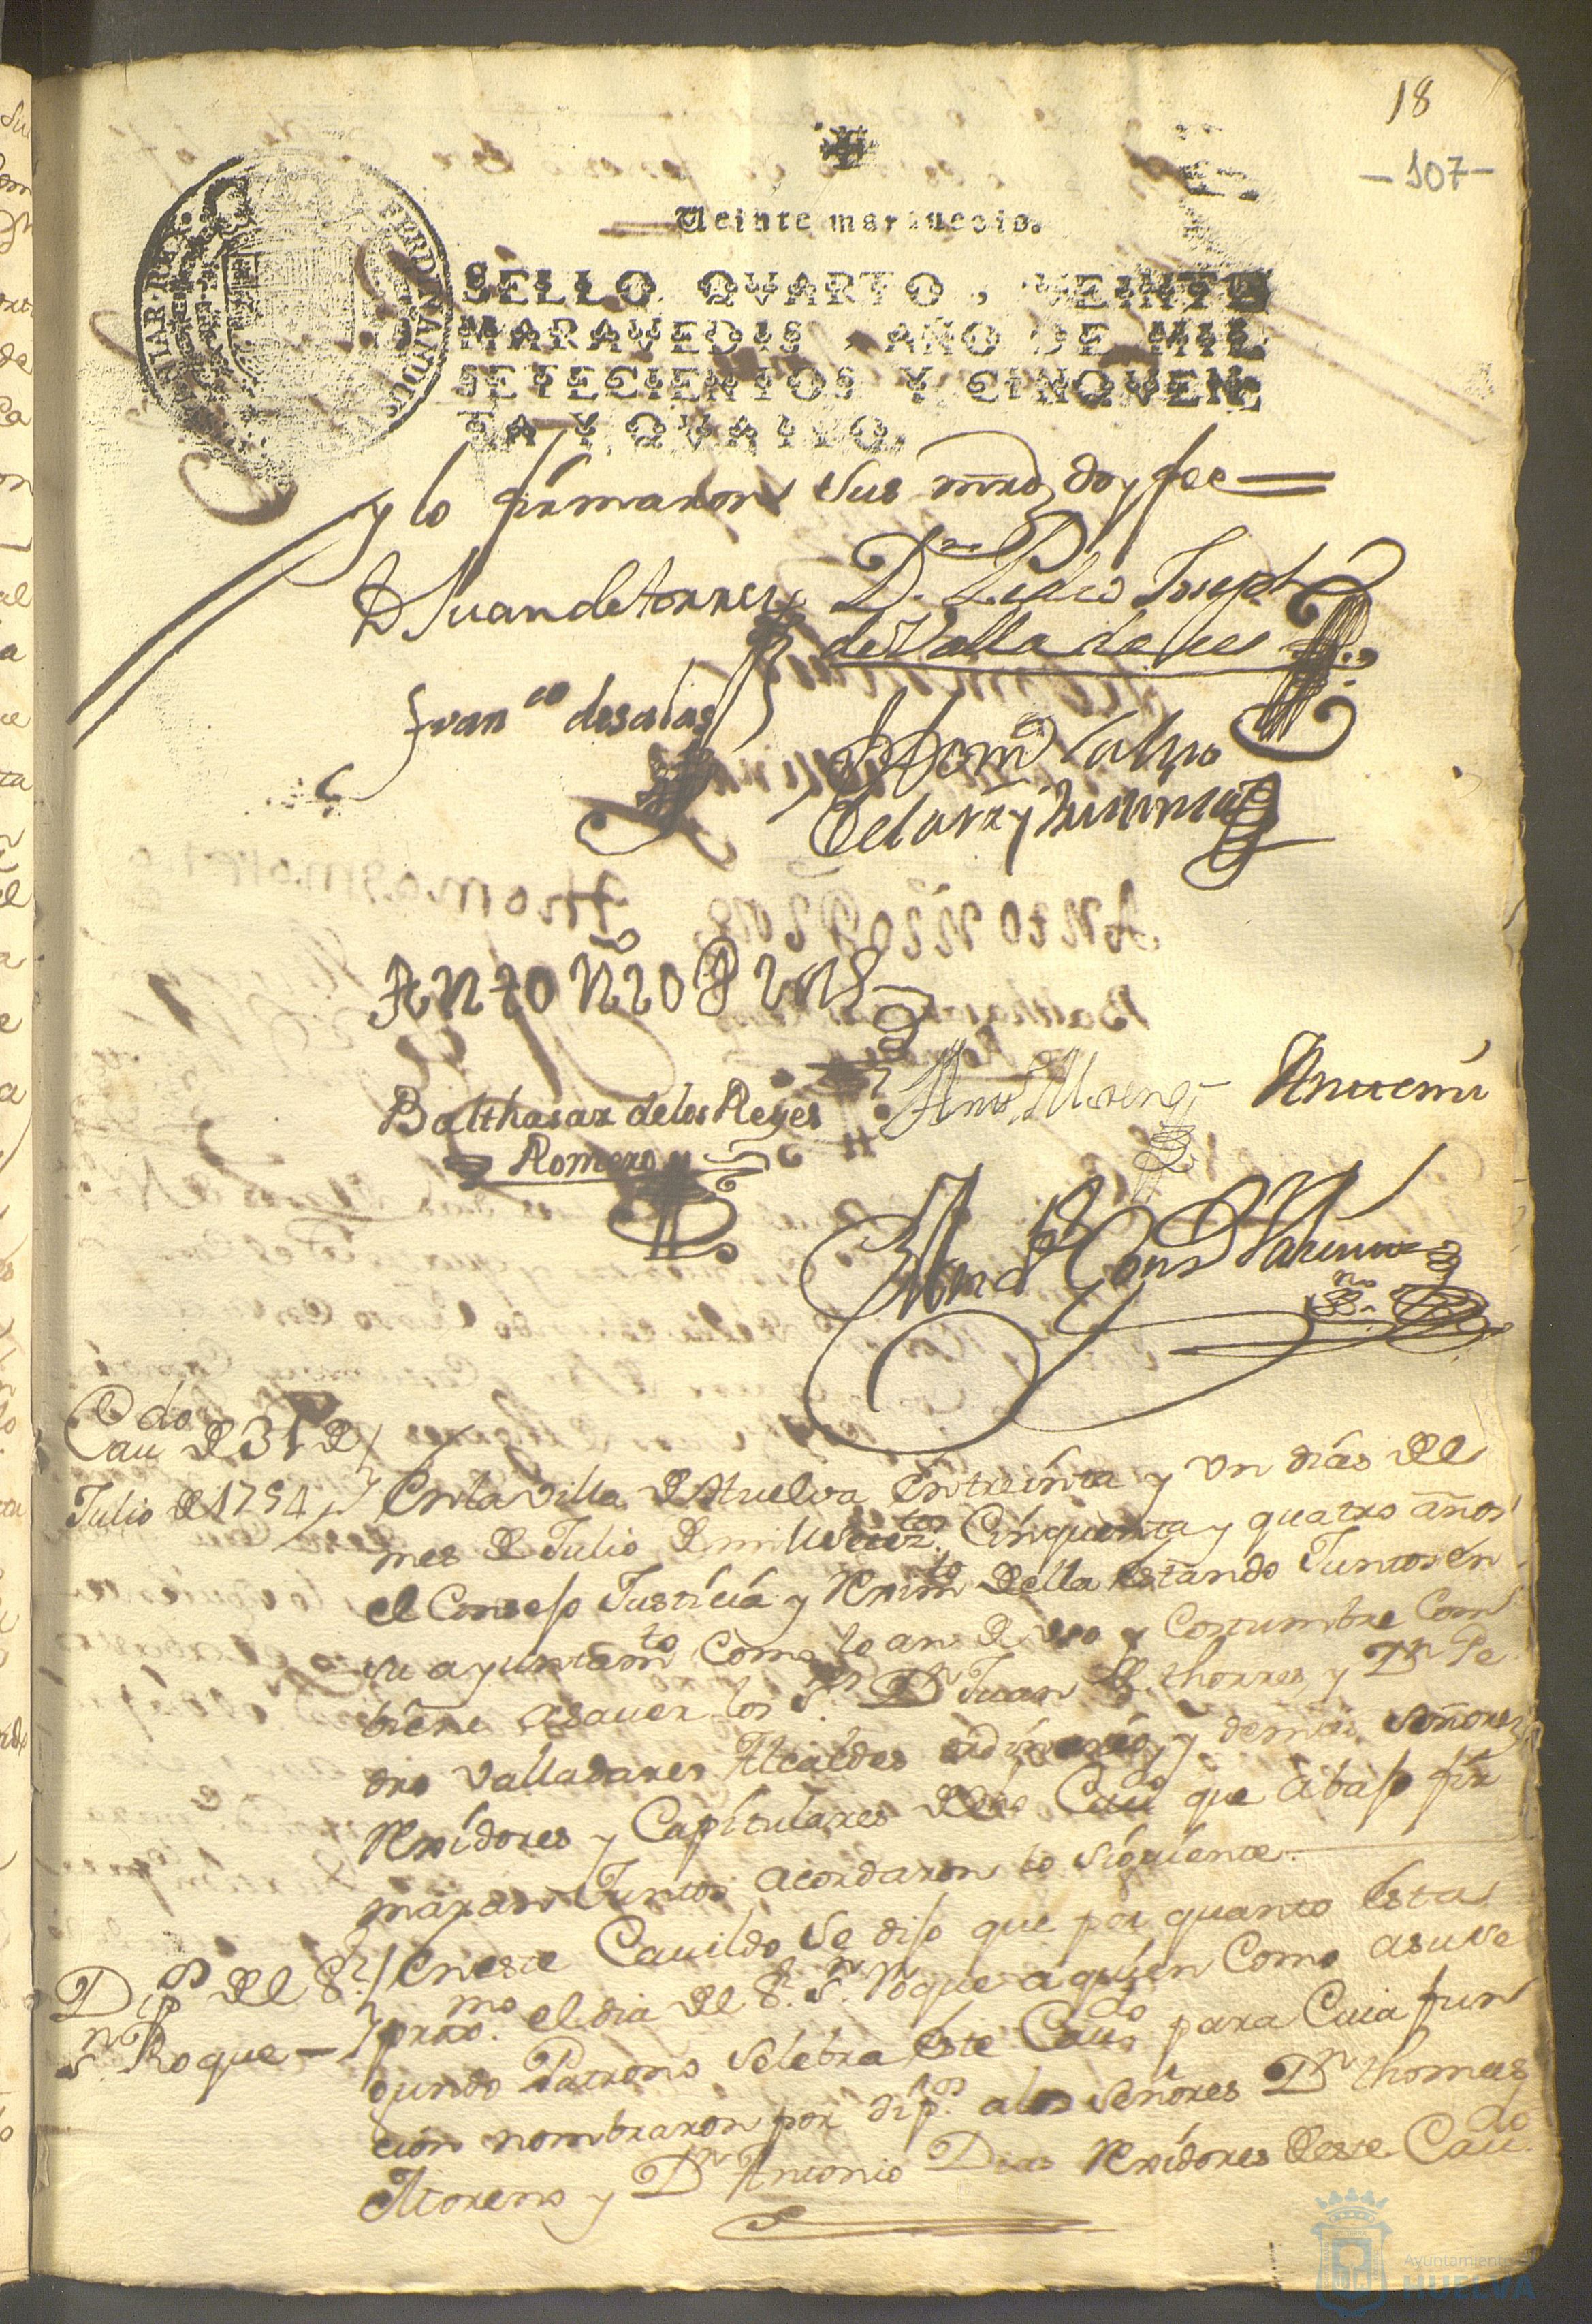 18
-107-
Veinte maravedis.
SELLO QVARTO, VEINTE
MARAVEDIS, AÑO DE MIL
SETECIENTOS Y CINQVEN
TA Y QVATRO.
FERDINANDUS
y lo firmaron sus mrds doy fee
D Juan de torres
Dn. Pedro Joseph
de Valladares
Franco de salas
Antonio Dias
Balthasar de los Reyes
Romero
Moreno
Ante mi
Caudo de 31 de
Julio de 1754
En la villa de Huelva en treinta y un dias del
mes de Julio de mill setezos. Cinquenta y quatro años
el Consejo Justicia y Reximto della estando Juntos en
su ayuntamto como lo an de uso y Costumbre Com
biene asaver los Srs. Dn Juan de thorres, y Dn Pe
dro Valladares Alcaldes ordinarios, y demas señores
Rexidores y Capitulares deste Caudo que abajo fir
maran Juntos acordaron lo siguiente
Dipos del Sr.
Sn Roque
En este Cavildo se dijo que por quanto esta
proxmo. el dia del Sr. Sn. Roque a quien Como a su se
gundo Patrono selebra este Caudo. para Cuia fun
cion nombraron por dipos. a los señores Dn thomas
Moreno y Dn Antonio Dias Rexidores deste Caudo.
Ayuntamiento
HUELVA